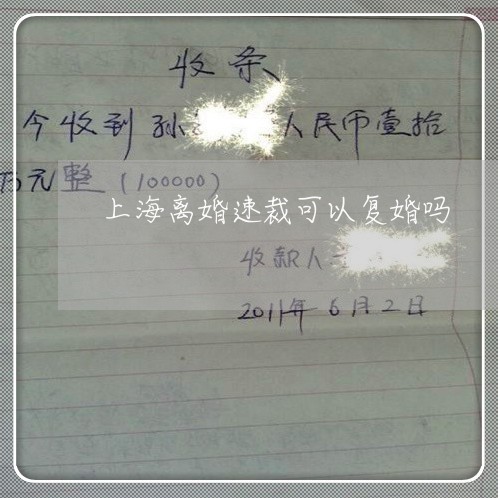 收条
今收到孙 人民币壹拾
万元整（100000）
上海离婚速裁可以复婚吗
收款人
2011年6月2日